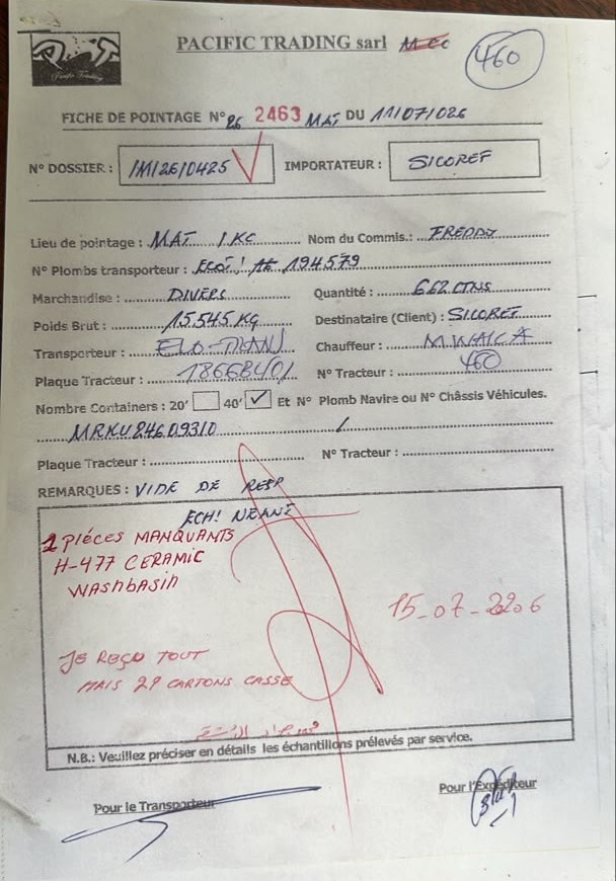 PACIFIC TRADING sarl M.CC
460
Pacific Trading
FICHE DE POINTAGE N° 26 2463 MAT DU 11/07/026
N° DOSSIER : IMI2610425 IMPORTATEUR : SICOREF
Lieu de pointage : MAT / KC Nom du Commis.: FREDDY
N° Plombs transporteur : 194579
Marchandise : DIVERS Quantité : 662 CTNS
Poids Brut : 15545 KG Destinataire (Client) : SICOREF
Transporteur : ELO-TRANS Chauffeur : MWAICA
Plaque Tracteur : N° Tracteur : 460
Nombre Containers : 20' 40' ✓ Et N° Plomb Navire ou N° Châssis Véhicules.
MRKU 84609310 /
Plaque Tracteur : N° Tracteur :
REMARQUES : VIDE DE RESP
ECH! NEANT
2 PIÉCES MANQUANTS
H-477 CERAMIC
WASHBASIN
15-07-2026
JE REÇU TOUT
MAIS 29 CARTONS CASSE
N.B.: Veuillez préciser en détails les échantillons prélevés par service.
Pour le Transporteur Pour l'Expéditeur